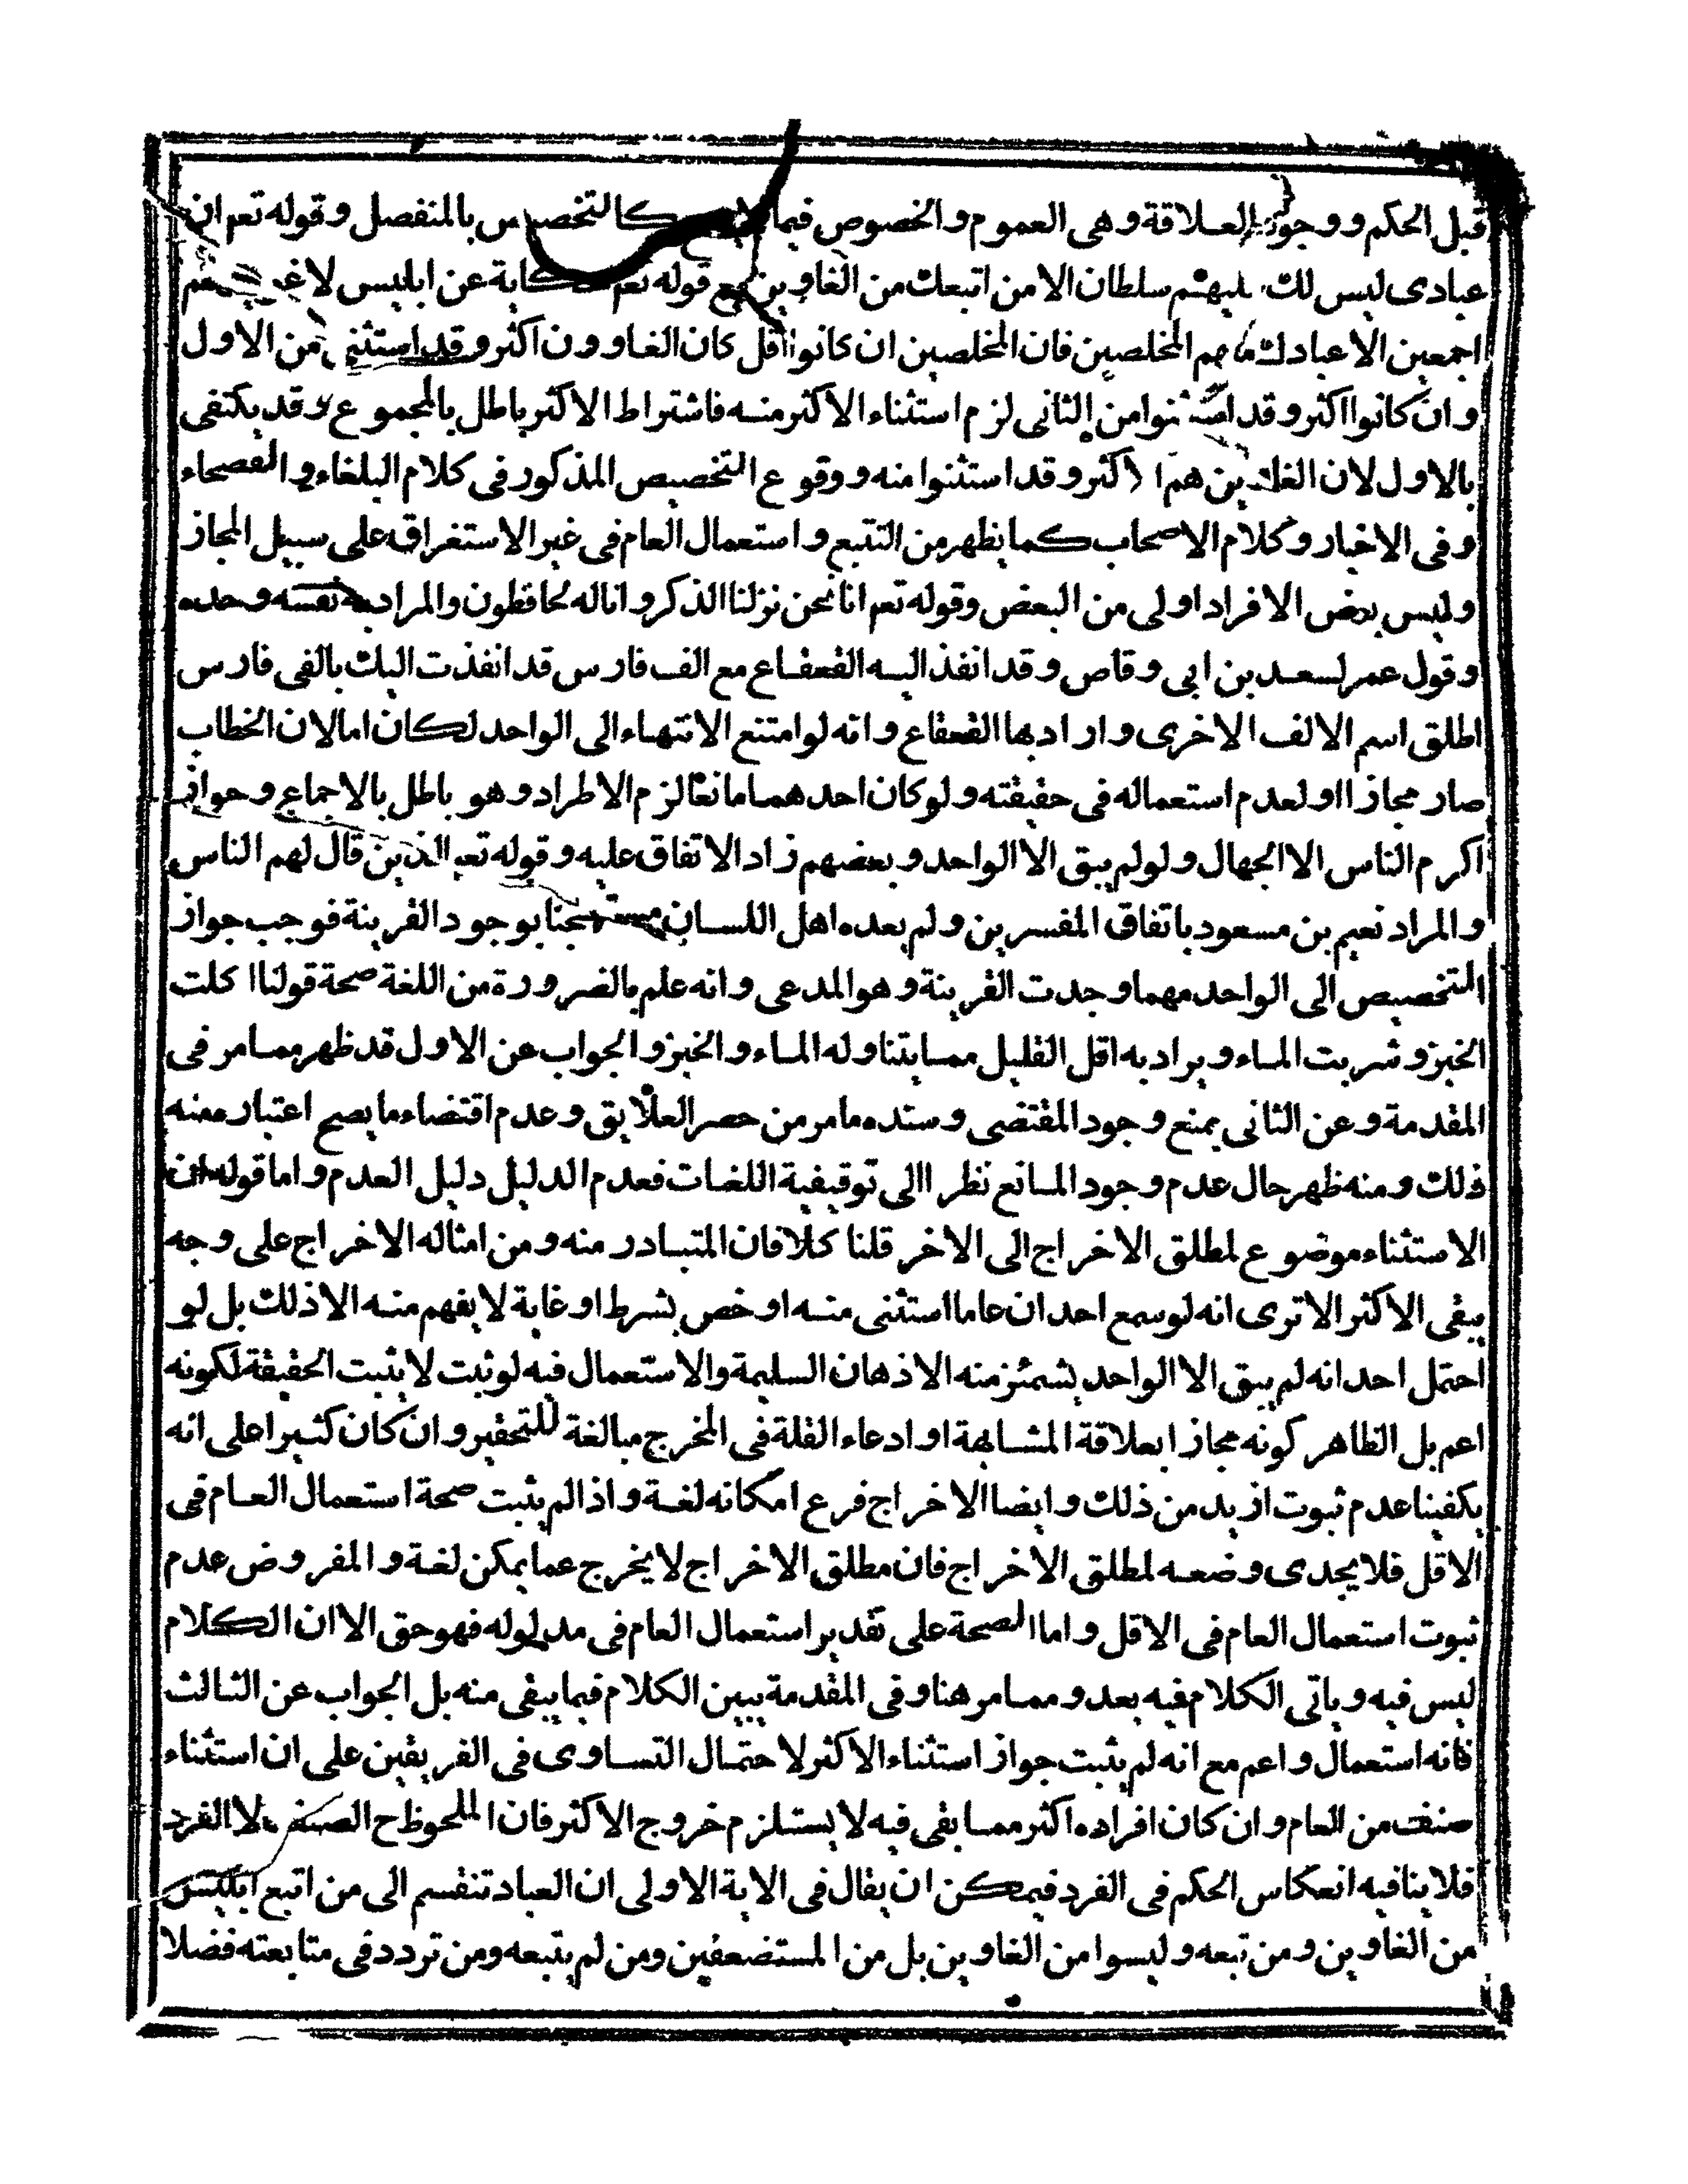 قبل الحكم ووجود العلاقة وهى العموم والخصوص فيما كالتخصيص بالمنفصل وقوله تعم ان
عبادى ليس لك عليهم سلطان الا من اتبعك من الغاوين مع قوله تعم حكاية عن ابليس لاغوينهم
اجمعين الا عبادك منهم المخلصين فان المخلصين ان كانوا اقل كان الغاوون اكثر وقد استثنى من الاول
وان كانوا اكثر وقد استثنوا من الثانى لزم استثناء الاكثر منه فاشتراط الاكثر باطل بالمجموع وقد يكتفى
بالاول لان الغاوين هم اكثر وقد استثنوا منه ووقوع التخصيص المذكور فى كلام البلغاء والفصحاء
وفى الاخبار وكلام الاصحاب كما يظهر من التتبع واستعمال العام فى غير الاستغراق على سبيل المجاز
وليس بعض الافراد اولى من البعض وقوله تعم انا نحن نزلنا الذكر وانا له لحافظون والمراد به نفسه وحده
وقول عمر لسعد بن ابى وقاص وقد انفذ اليه القعقاع مع الف فارس قد انفذت اليك بالفى فارس
اطلق اسم الالف الاخرى واراد بها القعقاع وانه لو امتنع الانتهاء الى الواحد لكان اما لان الخطاب
صار مجازا او لعدم استعماله فى حقيقته ولو كان احدهما مانعا لزم الاطراد وهو باطل بالاجماع وجواز
اكرم الناس الا الجهال ولو لم يبق الا الواحد وبعضهم زاد الاتفاق عليه وقوله تعم الذين قال لهم الناس
والمراد نعيم بن مسعود باتفاق المفسرين ولم يعده اهل اللسان مستهجنا بوجود القرينة فوجب جواز
التخصيص الى الواحد مهما وجدت القرينة وهو المدعى وانه علم بالضرورة من اللغة صحة قولنا اكلت
الخبز وشربت الماء ويراد به اقل القليل مما يتناوله الماء والخبز والجواب عن الاول قد ظهر مما مر فى
المقدمة وعن الثانى بمنع وجود المقتضى وسنده ما مر من حصر العلايق وعدم اقتضاء ما يصح اعتباره منه
ذلك ومنه ظهر حال عدم وجود المانع نظرا الى توقيفية اللغات فعدم الدليل دليل العدم واما قوله ان
الاستثناء موضوع لمطلق الاخراج الى الاخر قلنا كلا فان المتبادر منه ومن امثاله الاخراج على وجه
يبقى الاكثر الا ترى انه لو سمع احد ان عاما استثنى منه او خص بشرط او غاية لا يفهم منه الا ذلك بل لو
احتمل احد انه لم يبق الا الواحد يشمئز منه الاذهان السليمة والاستعمال فيه لو ثبت لا يثبت الحقيقة لكونه
اعم بل الظاهر كونه مجازا بعلاقة المشابهة او ادعاء القلة فى المخرج مبالغة للتحقير وان كان كثيرا على انه
يكفينا عدم ثبوت ازيد من ذلك وايضا الاخراج فرع امكانه لغة واذا لم يثبت صحة استعمال العام فى
الاقل فلا يجدى وضعه لمطلق الاخراج فان مطلق الاخراج لا يخرج عما يمكن لغة والمفروض عدم
ثبوت استعمال العام فى الاقل واما الصحة على تقدير استعمال العام فى مدلوله فهو حق الا ان الكلام
ليس فيه وياتى الكلام فيه بعد ومما مر هنا وفى المقدمة يبين الكلام فيما يبقى منه بل الجواب عن الثالث
فانه استعمال واعم مع انه لم يثبت جواز استثناء الاكثر لاحتمال التساوى فى الفريقين على ان استثناء
صنف من العام وان كان افراده اكثر مما بقى فيه لا يستلزم خروج الاكثر فان الملحوظ ح الصنف لا الفرد
فلا ينافيه انعكاس الحكم فى الفرد فيمكن ان يقال فى الاية الاولى ان العباد تنقسم الى من اتبع ابليس
من الغاوين ومن تبعه وليسوا من الغاوين بل من المستضعفين ومن لم يتبعه ومن تردد فى متابعته فضلا